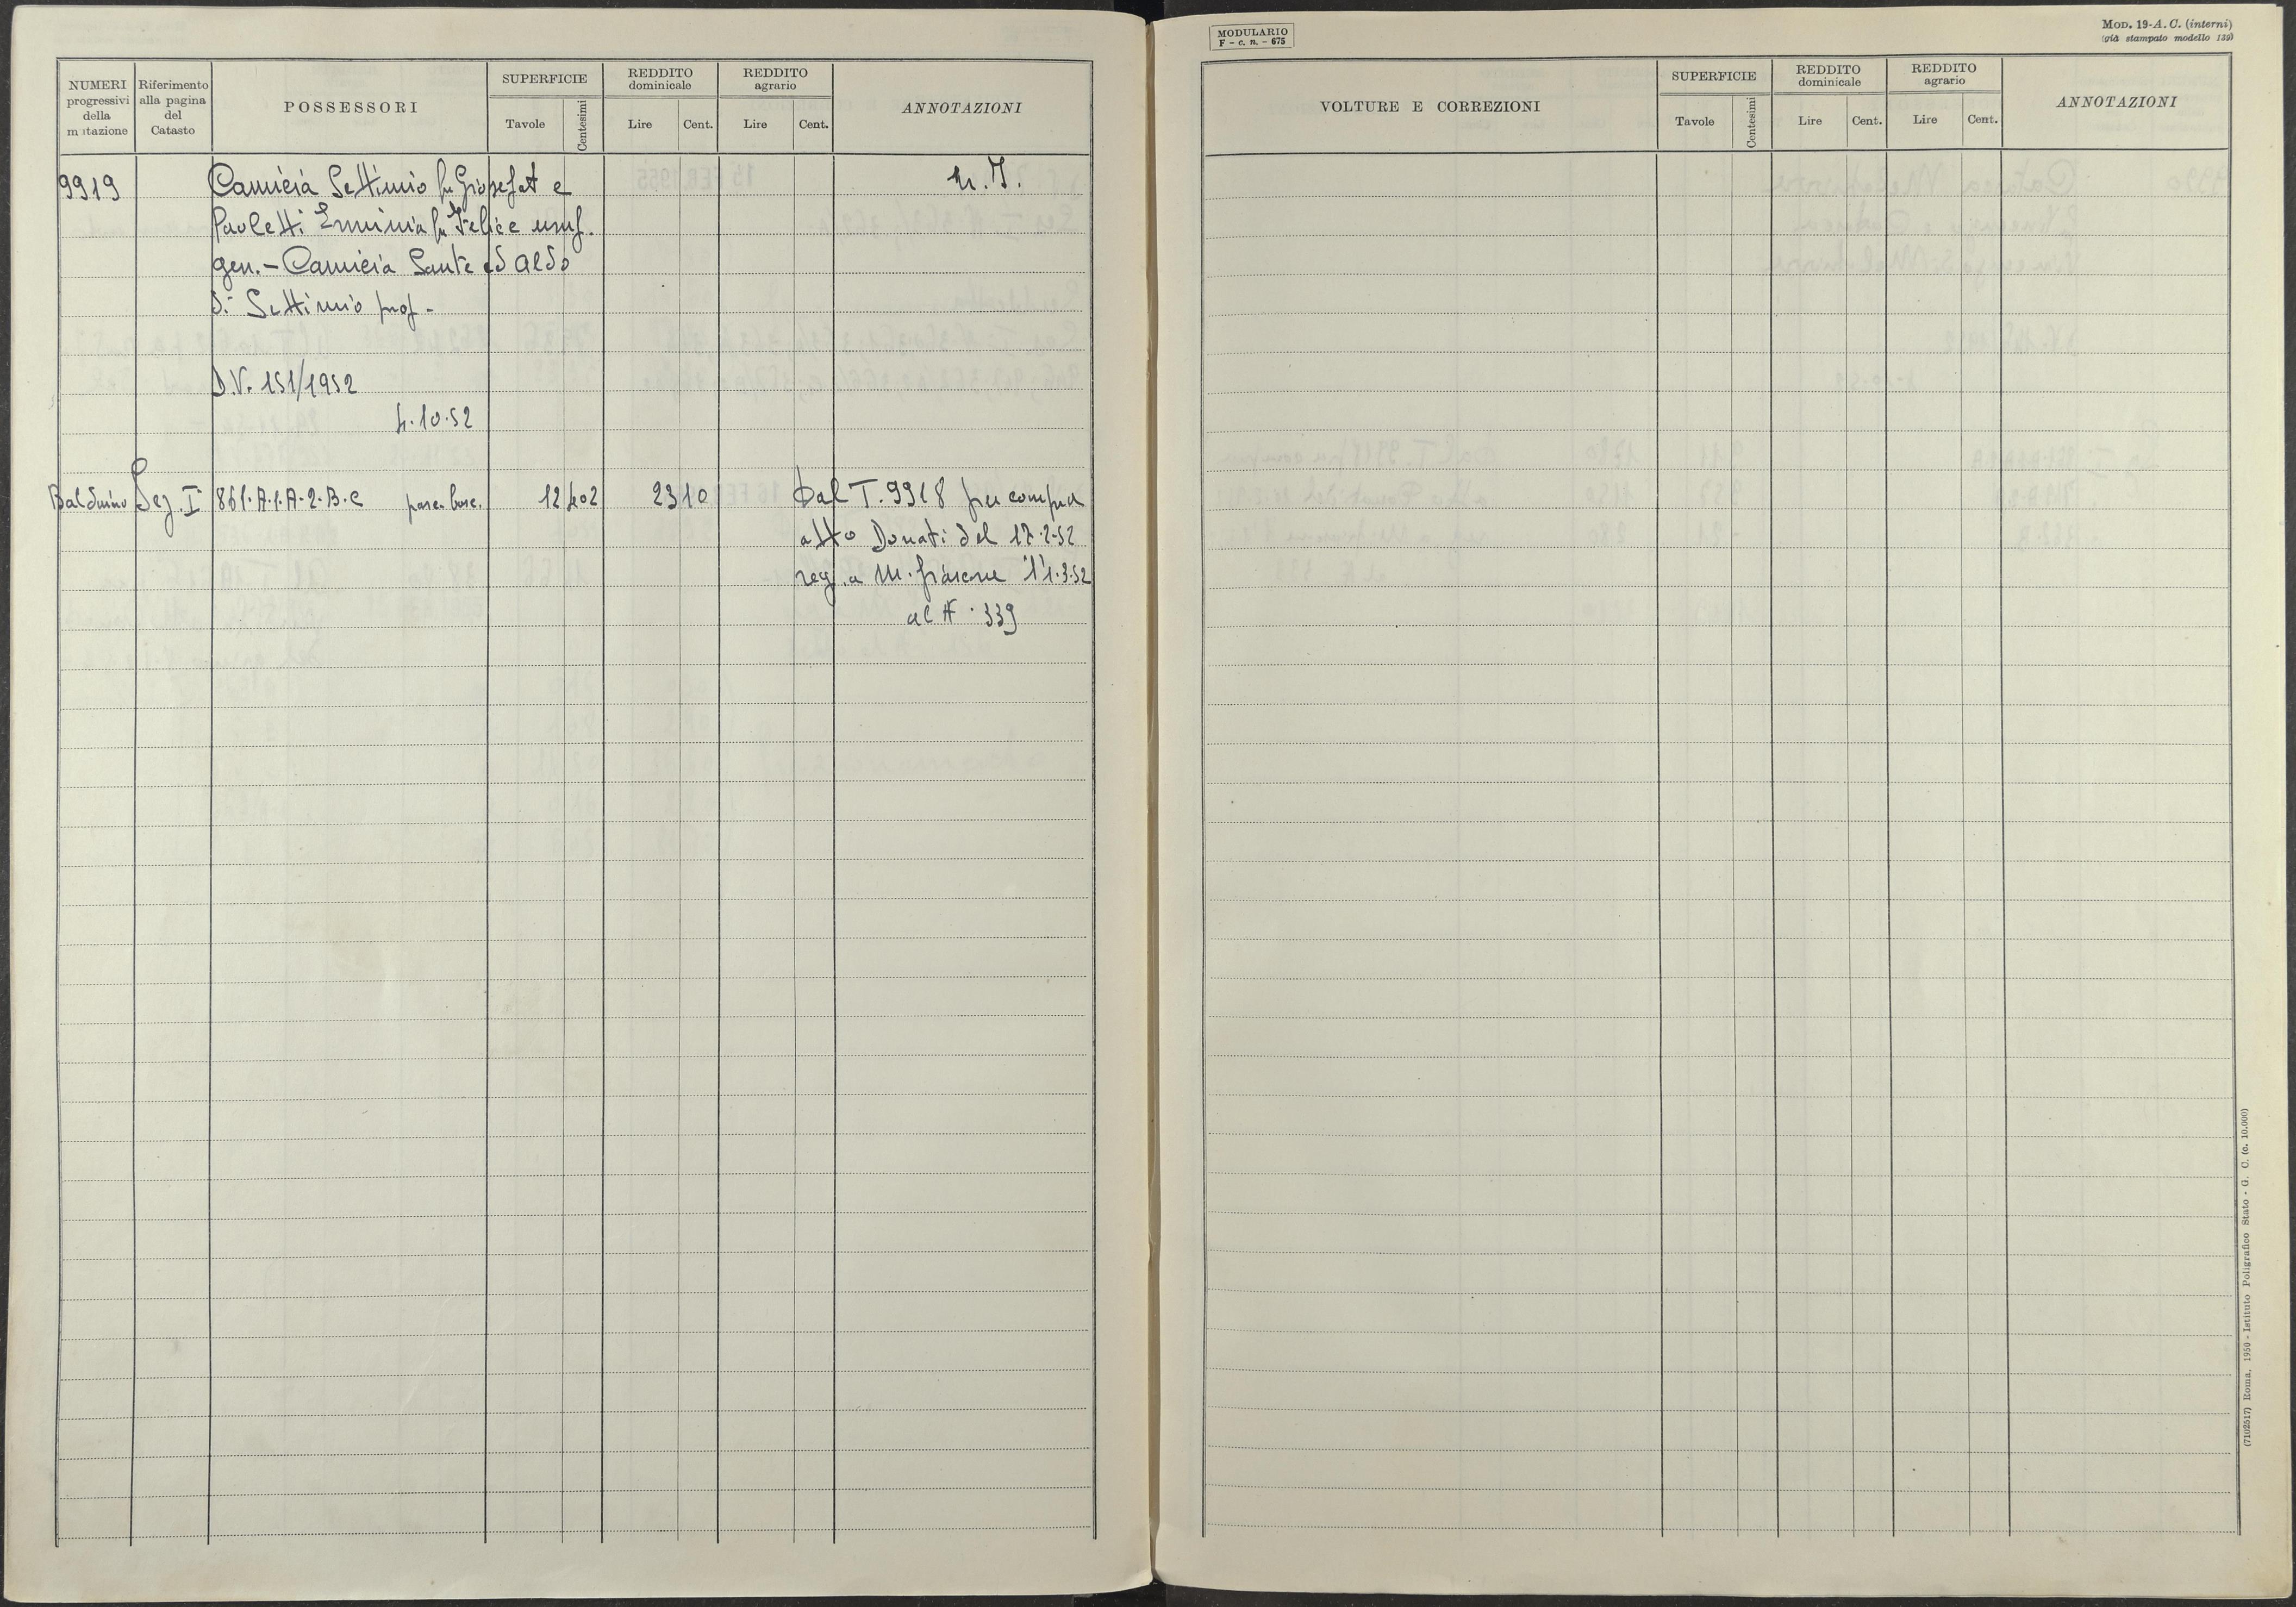 NUMERI progressivi della mutazione
Riferimento alla pagina del Catasto
POSSESSORI
SUPERFICIE
Tavole
Centesimi
REDDITO dominicale
Lire
Cent.
REDDITO agrario
Lire
Cent.
ANNOTAZIONI
9919 Camicia Settimio fu Giosefat e
Paoletti Erminia fu Felice usuf.
gen. - Camicia Sante ed Aldo
di Settimio prop. -
D.V. 151/1952
4.10.52
Balduino Sez. I 861.A.1.A-2.B.C 12 402 2310 Dal T. 9918 per compra
atto Donati del 17.2.52
reg. a M. l'1.3.52
al N. 339
MODULARIO
F - c. n. - 675
MOD. 19-A. C. (interni)
(già stampato modello 139)
VOLTURE E CORREZIONI
SUPERFICIE
Tavole
Centesimi
REDDITO dominicale
Lire
Cent.
REDDITO agrario
Lire
Cent.
ANNOTAZIONI
(7102517) Roma, 1950 - Istituto Poligrafico Stato - G. C. (c. 10.000)